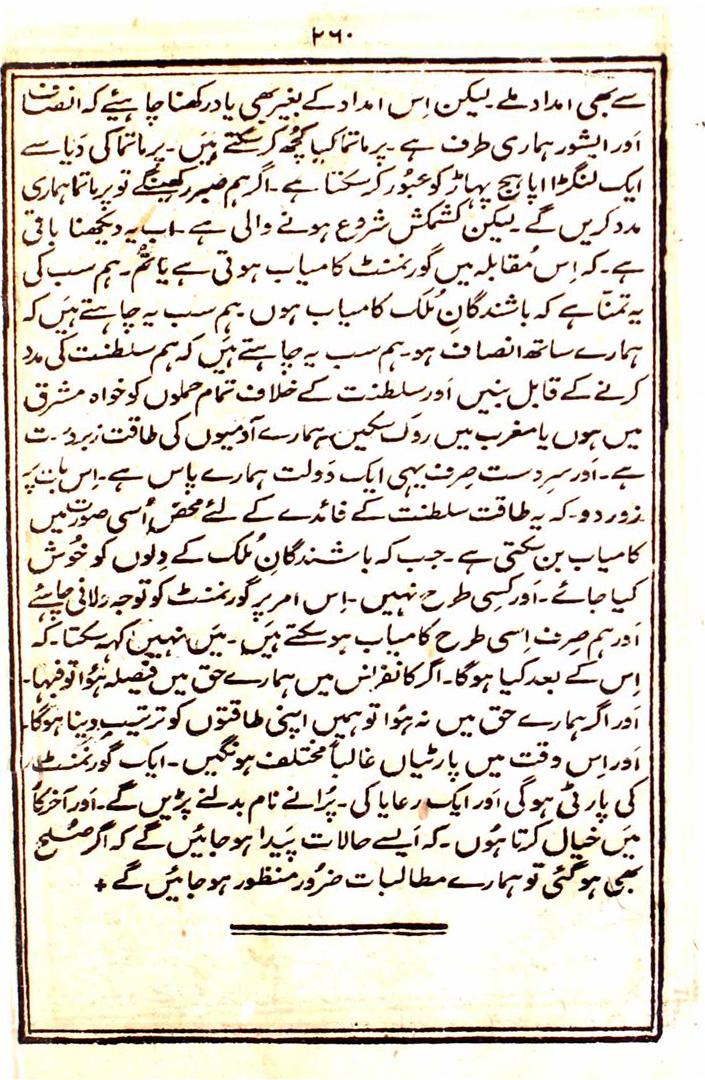 ۲۶۰
سے بھی امداد ملے۔ لیکن اِس امداد کے بغیر بھی یاد رکھنا چاہیئے کہ انصاف
اَور ایشور ہماری طرف ہے۔ پرماتما کیا کچُھ کر سکتے ہَیں۔ پرماتما کی دَیا سے
ایک لنگڑا اپاہیج پہاڑ کو عبُور کر سکتا ہے۔ اگر ہم صبر رکھینگے تو پرماتما ہماری
مدد کریں گے۔ لیکن کشمکش شروع ہونے والی ہے۔ اب یہ دیکھنا باقی
ہے۔ کہ اِس مُقابلہ میں گورنمنٹ کامیاب ہوتی ہے یا تُم۔ ہم سب کی
یہ تمنّا ہے کہ باشندگانِ مُلک کامیاب ہوں۔ ہم سب یہ چاہتے ہَیں کہ
ہمارے ساتھ انصاف ہو۔ ہم سب یہ چاہتے ہَیں کہ ہم سلطنت کی مدد
کرنے کے قابل بنیں اَور سلطنت کے خلاف تمام حملوں کو خواہ مشرق
میں ہوں یا مغرب میں روک سکیں۔ ہمارے آدمیوں کی طاقت زبردست
ہے۔ اَور سرِدست صِرف یہی ایک دَولت ہمارے پاس ہے۔ اِس بات پر
زور دو۔ کہ یہ طاقت سلطنت کے فائدے کے لئے محض اُسی صورت میں
کامیاب بن سکتی ہے۔ جب کہ باشندگانِ مُلک کے دِلوں کو خُوش
کیا جائے۔ اَور کسِی طرح نہیں۔ اِس امر پر گورنمنٹ کو توجہ دلانی چاہئے
اَور ہم صِرف اِسی طرح کامیاب ہو سکتے ہَیں۔ مَیں نہیں کہہ سکتا۔ کہ
اِس کے بعد کیا ہوگا۔ اگر کانفرنس میں ہمارے حق میں فیصلہ ہؤا تو فبہا۔
اَور اگر ہمارے حق میں نہ ہؤا تو ہمیں اپنی طاقتوں کو ترتیب دینا ہوگا۔
اَور اِس وقت میں پارٹیاں غالباً مختلف ہونگیں۔ ایک گورنمنٹ
کی پارٹی ہوگی اَور ایک رعایا کی۔ پُرانے نام بدلنے پڑیں گے۔ اَور آخرکار
مَیں خیال کرتا ہُوں۔ کہ اَیسے حالات پَیدا ہو جائیں گے کہ اگر صُلح
بھی ہو گئی تو ہمارے مطالبات ضرُور منظور ہو جائیں گے +